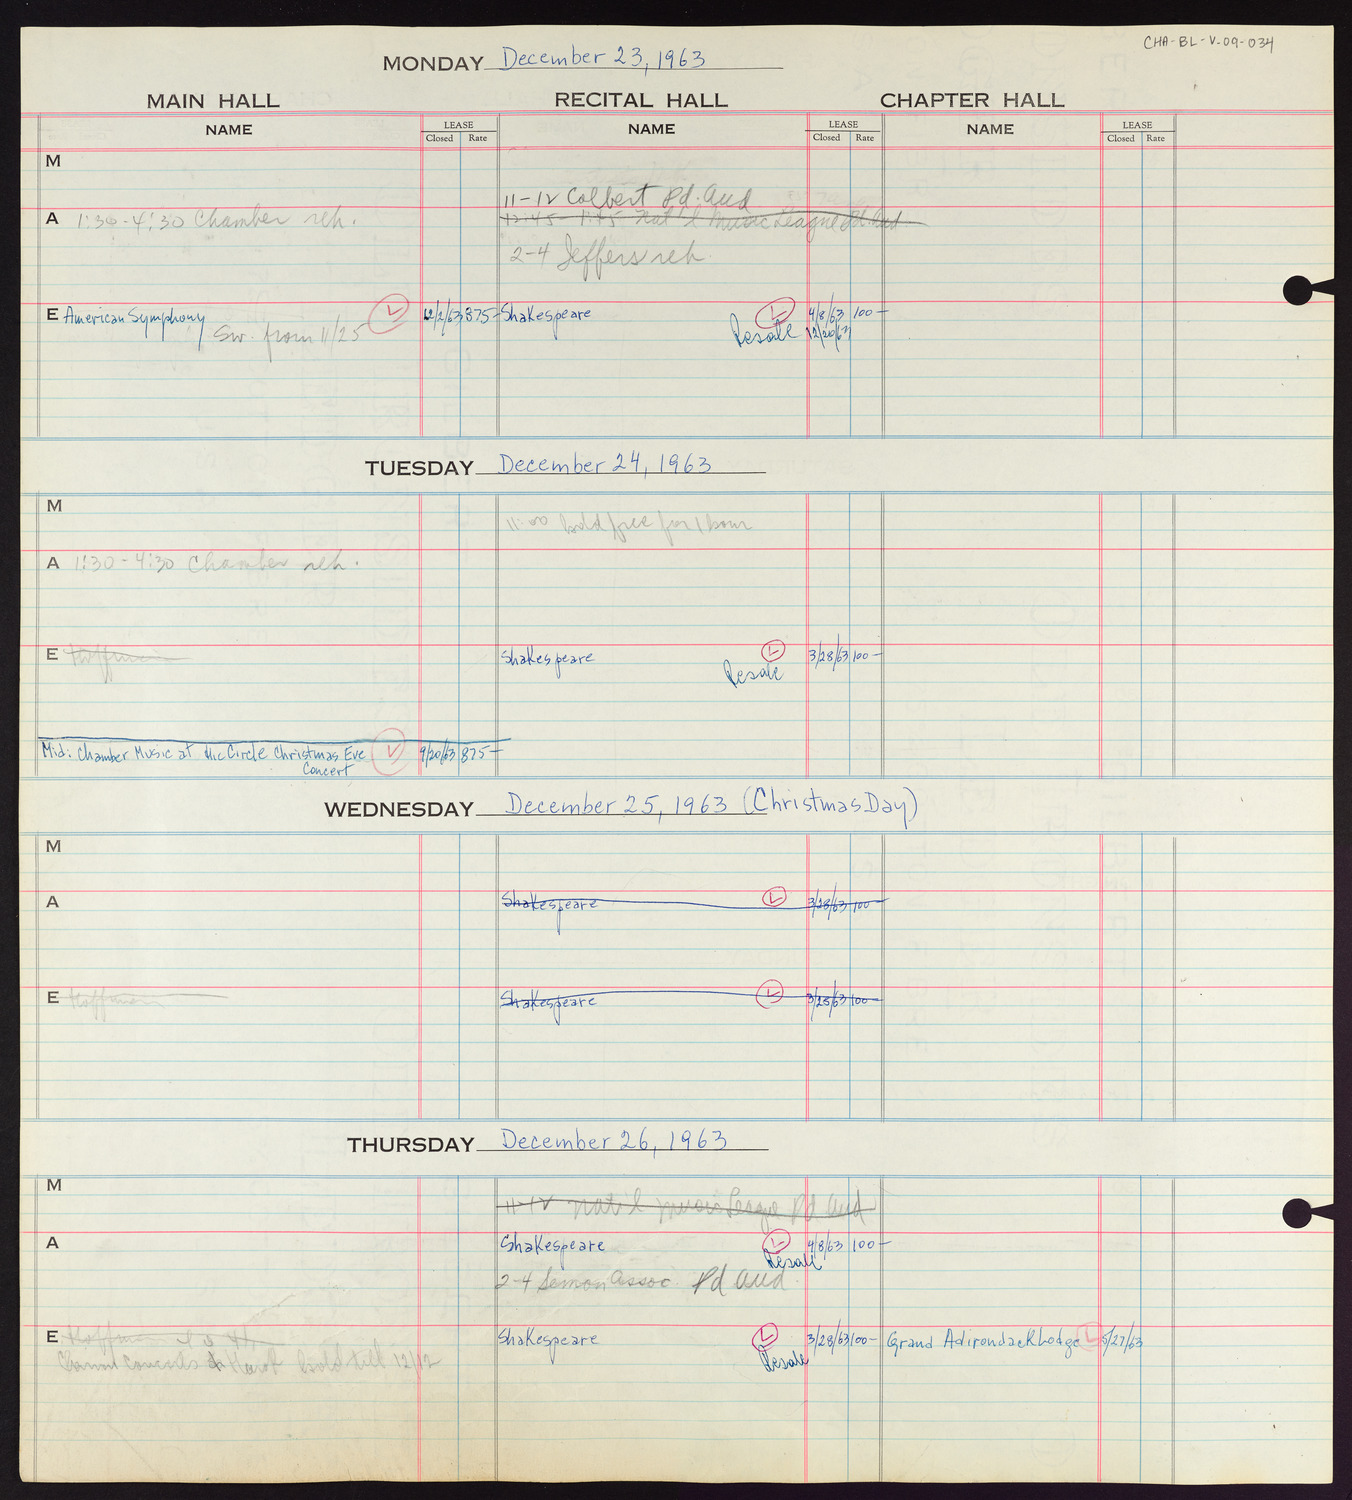 CHA-BL-V-09-034
MONDAY December 23, 1963
MAIN HALL RECITAL HALL CHAPTER HALL
NAME LEASE NAME LEASE NAME LEASE
Closed Rate Closed Rate Closed Rate
M
11-12 Colbert Pd. Aud
A 1:30-4:30 Chamber reh. 12:45-1:45 Nat'l Music League Pd Aud
2-4 Jeffers reh.
E American Symphony L 12/2/63 875- Shakespeare L 4/8/63 100-
Sw. from 11/25 Resale 12/20/63
TUESDAY December 24, 1963
M
11:00 hold free for 1 hour
A 1:30-4:30 Chamber reh.
E Hoffman Shakespeare L 3/28/63 100-
Resale
Mid: Chamber Music at the Circle Christmas Eve L 9/20/63 875-
Concert
WEDNESDAY December 25, 1963 (Christmas Day)
M
A Shakespeare L 3/28/63 100-
E Hoffman Shakespeare L 3/28/63 100-
THURSDAY December 26, 1963
M
11-12 Nat'l Music League Pd Aud
A Shakespeare L 4/8/63 100-
Resale
2-4 Semon Assoc. Pd Aud
E Hoffman Shakespeare L 3/28/63 100- Grand Adirondack Lodge L 5/27/63
concerts hold till 12/12
Resale